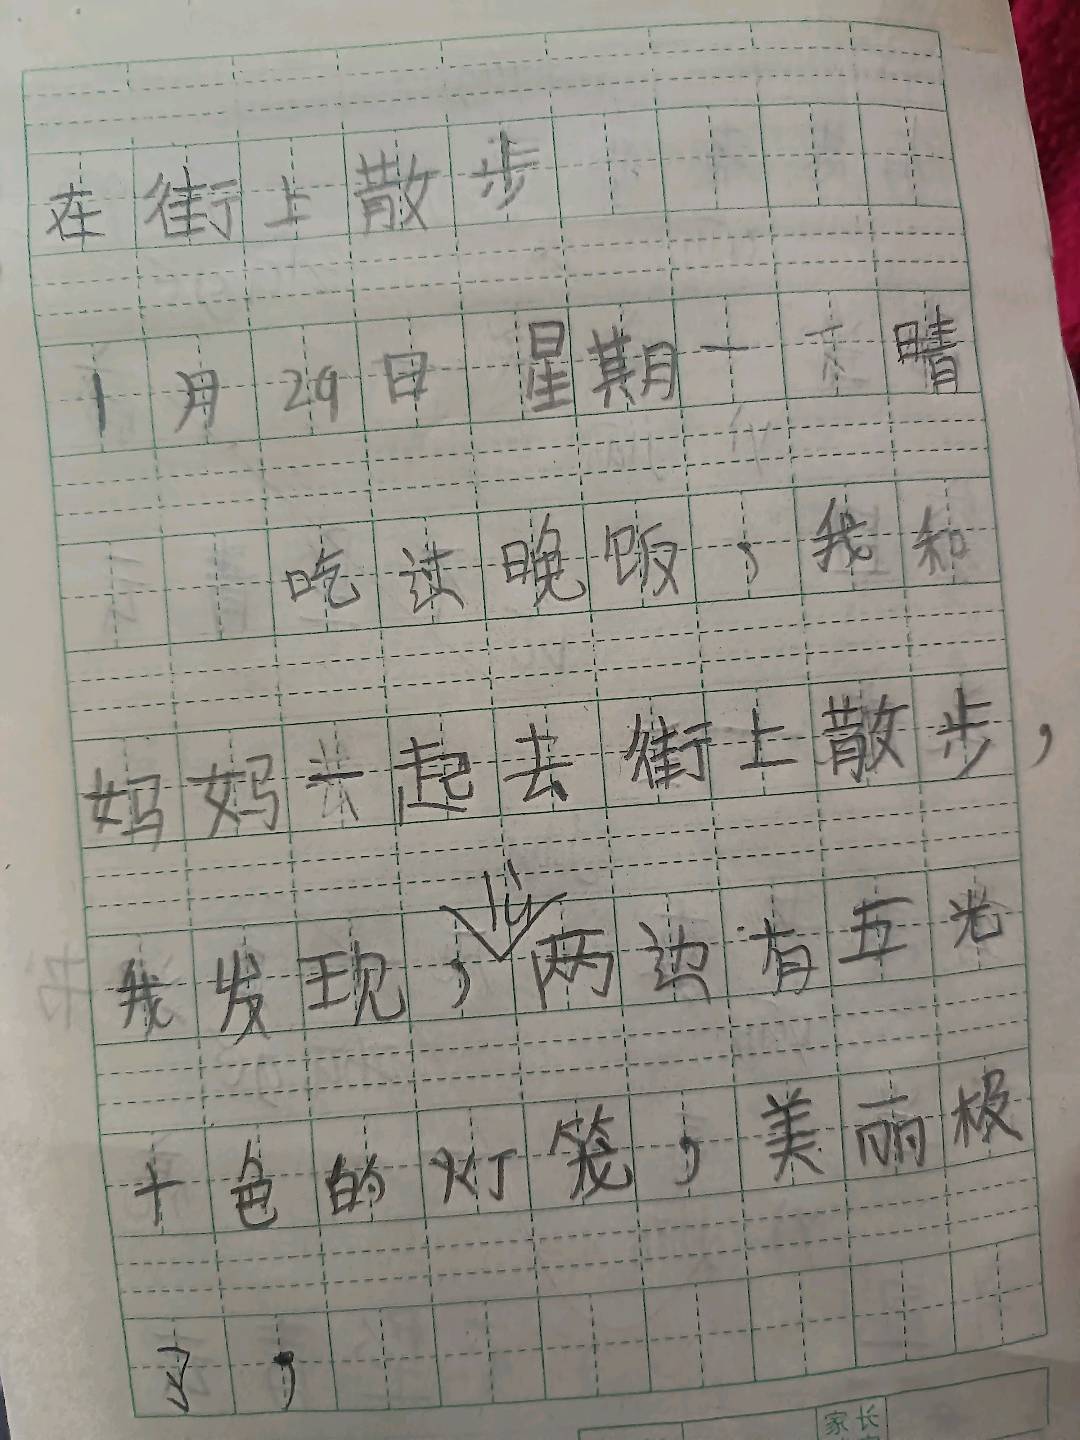 在街上散步
1月29日 星期一 晴
吃过晚饭，我和
妈妈一起去街上散步，
我发现，lù两边有五光
十色的灯笼，美丽极
了，
家长